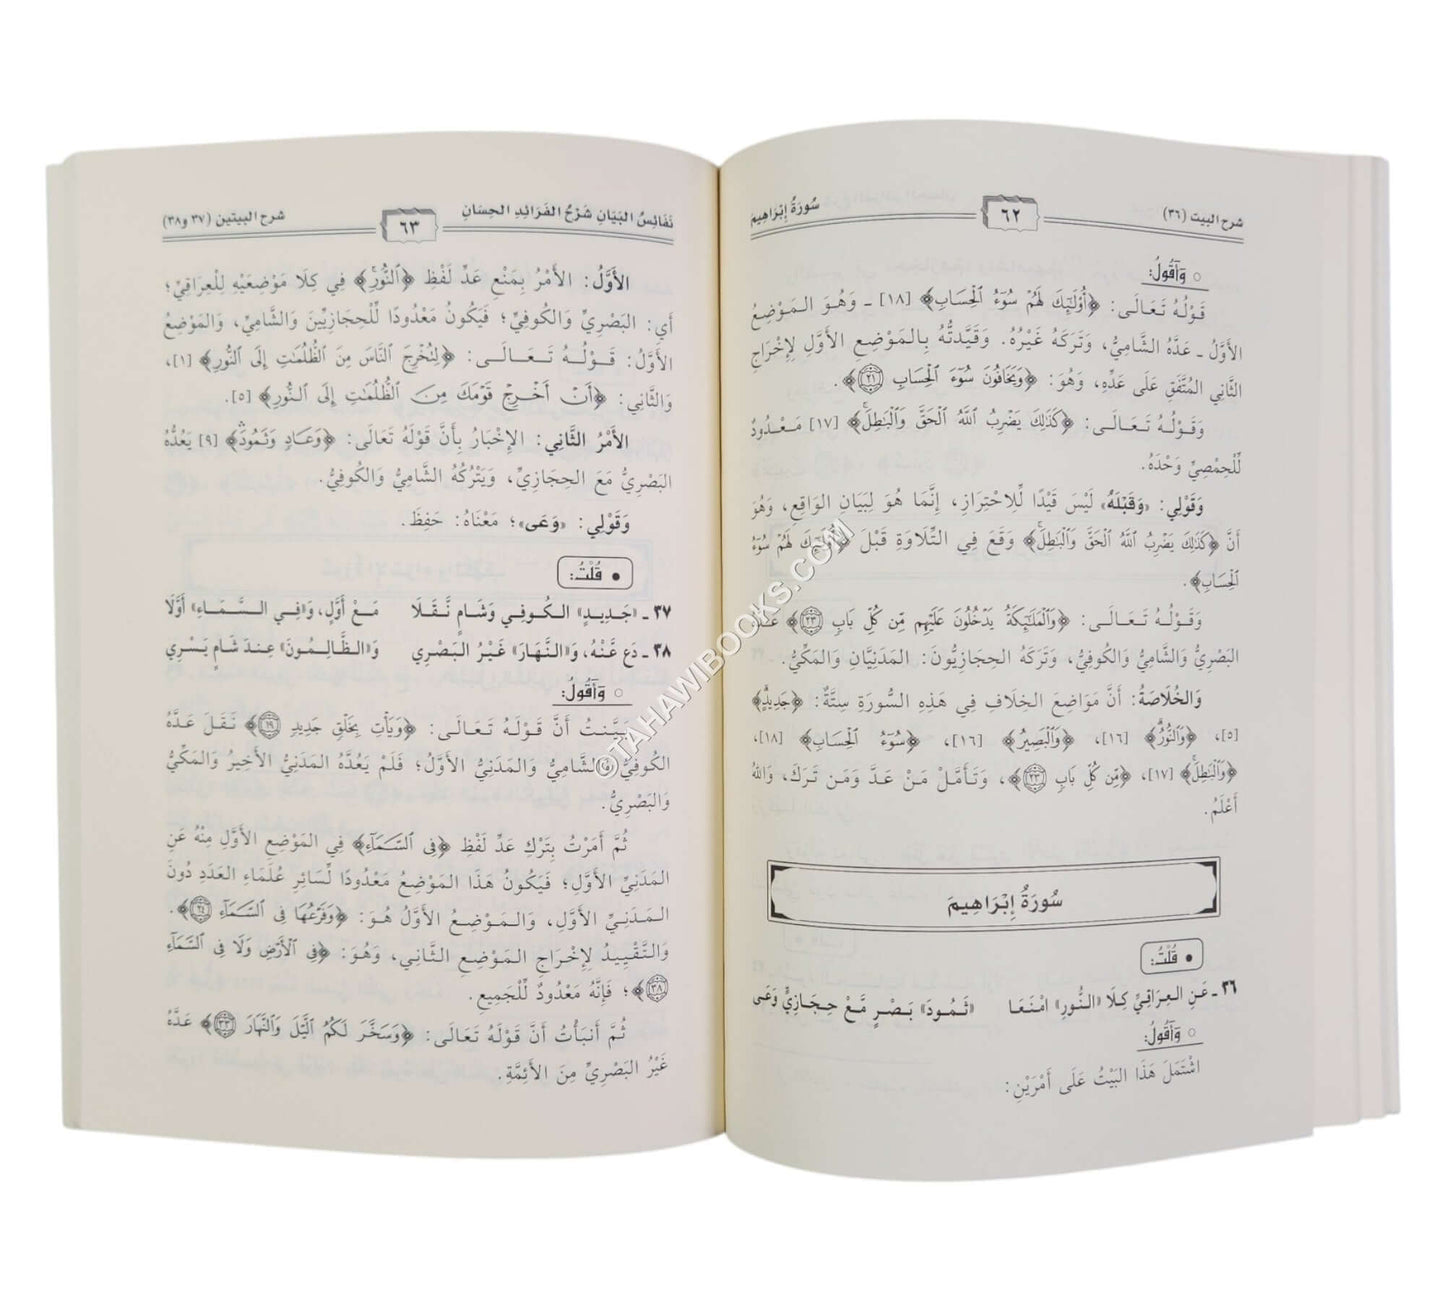 شرح البيت (٣٦)
٦٢
سُورَةُ إِبْرَاهِيمَ
○ وَأَقُولُ:
قَوْلُهُ تَعَالَى: ﴿أُوْلَٰٓئِكَ لَهُمْ سُوٓءُ ٱلْحِسَابِ﴾ [١٨] ـ وَهُوَ المَوْضِعُ
الأَوَّلُ ـ عَدَّهُ الشَّامِيُّ، وَتَرَكَهُ غَيْرُهُ. وَقَيَّدتُّهُ بِالمَوْضِعِ الأَوَّلِ لِإِخْرَاجِ
الثَّانِي المُتَّفَقِ عَلَى عَدِّهِ، وَهُوَ: ﴿وَيَخَافُونَ سُوٓءَ ٱلْحِسَابِ ٢١﴾.
وَقَوْلُهُ تَعَالَى: ﴿كَذَٰلِكَ يَضْرِبُ ٱللَّهُ ٱلْحَقَّ وَٱلْبَٰطِلَ﴾ [١٧] مَعْدُودٌ
لِّلْحِمْصِيِّ وَحْدَهُ.
وَقَوْلِي: «وَقَبْلَهُ» لَيْسَ قَيْدًا لِّلِاحْتِرَازِ، إِنَّمَا هُوَ لِبَيَانِ الوَاقِعِ، وَهُوَ
أَنَّ ﴿كَذَٰلِكَ يَضْرِبُ ٱللَّهُ ٱلْحَقَّ وَٱلْبَٰطِلَ﴾ وَقَعَ فِي التِّلَاوَةِ قَبْلَ ﴿أُوْلَٰٓئِكَ لَهُمْ سُوٓءُ
ٱلْحِسَابِ﴾.
وَقَوْلُهُ تَعَالَى: ﴿وَٱلْمَلَٰٓئِكَةُ يَدْخُلُونَ عَلَيْهِم مِّن كُلِّ بَابٍ ٢٣﴾ عَدَّهُ
البَصْرِيُّ وَالشَّامِيُّ وَالكُوفِيُّ، وَتَرَكَهُ الحِجَازِيُّونَ: المَدَنِيَّانِ وَالمَكِّيُّ.
وَالخُلَاصَةُ: أَنَّ مَوَاضِعَ الخِلَافِ فِي هَذِهِ السُّورَةِ سِتَّةٌ: ﴿جَدِيدٍ﴾
[٥]، ﴿وَٱلنُّورُ﴾ [١٦]، ﴿وَٱلْبَصِيرُ﴾ [١٦]، ﴿سُوٓءُ ٱلْحِسَابِ﴾ [١٨]،
﴿وَٱلْبَٰطِلَ﴾ [١٧]، ﴿مِّن كُلِّ بَابٍ ٢٣﴾، وَتَأَمَّلْ مَنْ عَدَّ وَمَن تَرَكَ، وَاللهُ
أَعْلَمُ.
سُورَةُ إِبْرَاهِيمَ
• قُلْتُ:
٣٦ ـ عَنِ العِرَاقِيِّ كِلَا «النُّورِ» امْنَعَا «ثَمُودَ» بَصْرٍ مَّعْ حِجَازِيٍّ وَعَى
○ وَأَقُولُ:
اشْتَمَلَ هَذَا البَيْتُ عَلَى أَمْرَيْنِ:
نَفَائِسُ البَيَانِ شَرْحُ الفَرَائِدِ الحِسَانِ
٦٣
شرح البيتين (٣٧ و٣٨)
الأَوَّلُ: الأَمْرُ بِمَنْعِ عَدِّ لَفْظِ ﴿ٱلنُّورِ﴾ فِي كِلَا مَوْضِعَيْهِ لِلْعِرَاقِيِّ؛
أَي: البَصْرِيِّ وَالكُوفِيِّ؛ فَيَكُونُ مَعْدُودًا لِّلْحِجَازِيِّينَ وَالشَّامِيِّ، وَالمَوْضِعُ
الأَوَّلُ: قَوْلُهُ تَعَالَى: ﴿لِتُخْرِجَ ٱلنَّاسَ مِنَ ٱلظُّلُمَٰتِ إِلَى ٱلنُّورِ﴾ [١]،
وَالثَّانِي: ﴿أَنْ أَخْرِجْ قَوْمَكَ مِنَ ٱلظُّلُمَٰتِ إِلَى ٱلنُّورِ﴾ [٥].
الأَمْرُ الثَّانِي: الإِخْبَارُ بِأَنَّ قَوْلَهُ تَعَالَى: ﴿وَعَادٍ وَثَمُودَ﴾ [٩] يَعُدُّهُ
البَصْرِيُّ مَعَ الحِجَازِيِّ، وَيَتْرُكُهُ الشَّامِيُّ وَالكُوفِيُّ.
وَقَوْلِي: «وَعَى»؛ مَعْنَاهُ: حَفِظَ.
• قُلْتُ:
٣٧ ـ «جَدِيدٍ» الكُوفِي وَشَامٍ نَّقَلَا مَعْ أَوَّلٍ، وَ«فِي السَّمَاءِ» أَوَّلَا
٣٨ ـ دَع عَّنْهُ، وَ«النَّهَارَ» غَيْرُ البَصْرِي وَ«الظَّالِمُونَ» عِندَ شَامٍ يَسْرِي
○ وَأَقُولُ:
بَيَّنتُ أَنَّ قَوْلَهُ تَعَالَى: ﴿وَيَأْتِ بِخَلْقٍ جَدِيدٍ ١٩﴾ نَقَلَ عَدَّهُ
الكُوفِيُّ وَالشَّامِيُّ وَالمَدَنِيُّ الأَوَّلُ؛ فَلَمْ يَعُدَّهُ المَدَنِيُّ الأَخِيرُ وَالمَكِّيُّ
وَالبَصْرِيُّ.
ثُمَّ أَمَرْتُ بِتَرْكِ عَدِّ لَفْظِ ﴿فِى ٱلسَّمَآءِ﴾ فِي المَوْضِعِ الأَوَّلِ مِنْهُ عَنِ
المَدَنِيِّ الأَوَّلِ؛ فَيَكُونُ هَذَا المَوْضِعُ مَعْدُودًا لِّسَائِرِ عُلَمَاءِ العَدَدِ دُونَ
المَدَنِيِّ الأَوَّلِ، وَالمَوْضِعُ الأَوَّلُ هُوَ: ﴿وَفَرْعُهَا فِى ٱلسَّمَآءِ ٢٤﴾.
وَالتَّقْيِيدُ لِإِخْرَاجِ المَوْضِعِ الثَّانِي، وَهُوَ: ﴿فِى ٱلْأَرْضِ وَلَا فِى ٱلسَّمَآءِ
٣٨﴾؛ فَإِنَّهُ مَعْدُودٌ لِّلْجَمِيعِ.
ثُمَّ أَنبَأْتُ أَنَّ قَوْلَهُ تَعَالَى: ﴿وَسَخَّرَ لَكُمُ ٱلَّيْلَ وَٱلنَّهَارَ ٣٣﴾ عَدَّهُ
غَيْرُ البَصْرِيِّ مِنَ الأَئِمَّةِ.
©TAHAWIBOOKS.COM